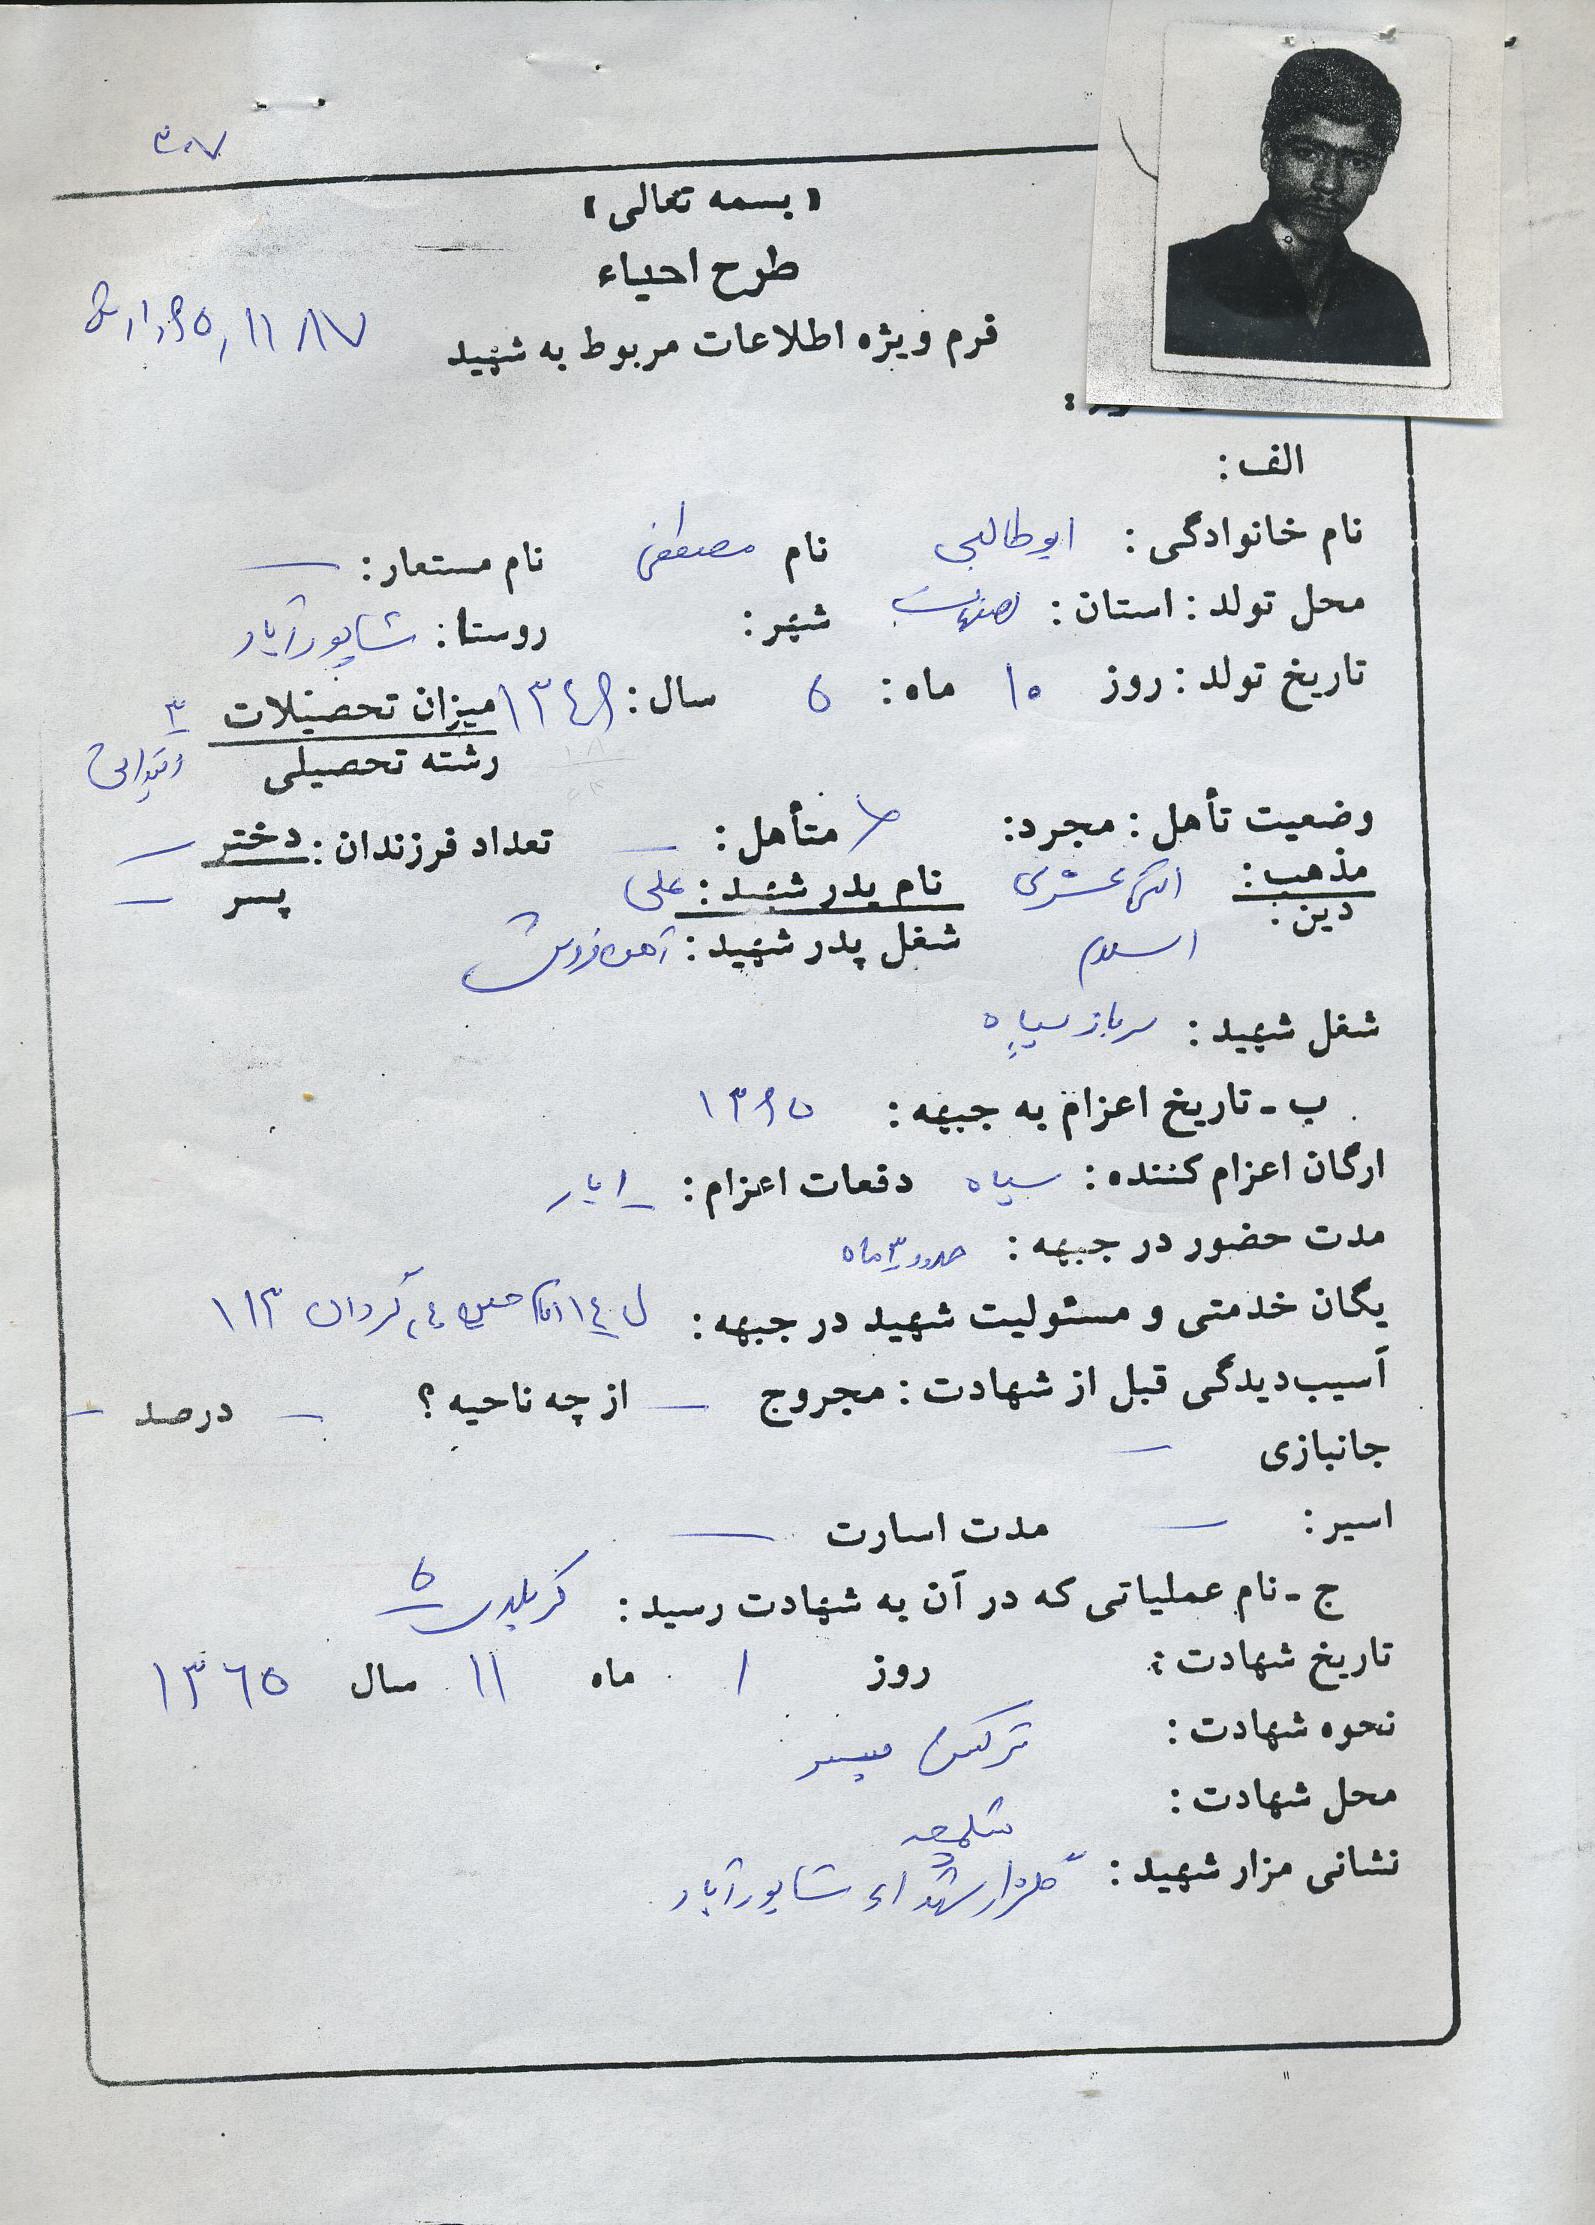 ۳۰۷
« بسمه تعالی »
طرح احیاء
فرم ویژه اطلاعات مربوط به شهید
الف :
نام خانوادگی : ابوطالبی نام مصطفی نام مستعار : —
محل تولد : استان : اصفهان شهر : روستا : شاپورآباد
تاریخ تولد : روز ۱۰ ماه : ۵ سال : ۱۳۴۶ میزان تحصیلات ۳
رشته تحصیلی ابتدایی
وضعیت تأهل : مجرد : متأهل : — تعداد فرزندان : دختر —
مذهب : اثنی عشری نام پدر شهید : علی پسر —
دین : اسلام شغل پدر شهید : آهن فروش
شغل شهید : سرباز سپاه
ب - تاریخ اعزام به جبهه : ۱۳۶۵
ارگان اعزام کننده : سپاه دفعات اعزام : ۱ بار
مدت حضور در جبهه : حدود ۳ ماه
یگان خدمتی و مسئولیت شهید در جبهه : ل ۱۴ امام حسین ع، گردان ۱۱۳
آسیب‌دیدگی قبل از شهادت : مجروح — از چه ناحیه ؟ — درصد —
جانبازی —
اسیر : — مدت اسارت —
ج - نام عملیاتی که در آن به شهادت رسید : کربلای ۵
تاریخ شهادت : روز ۱ ماه ۱۱ سال ۱۳۶۵
نحوه شهادت : ترکش
محل شهادت : شلمچه
نشانی مزار شهید : گلزار شهداء شاپورآباد